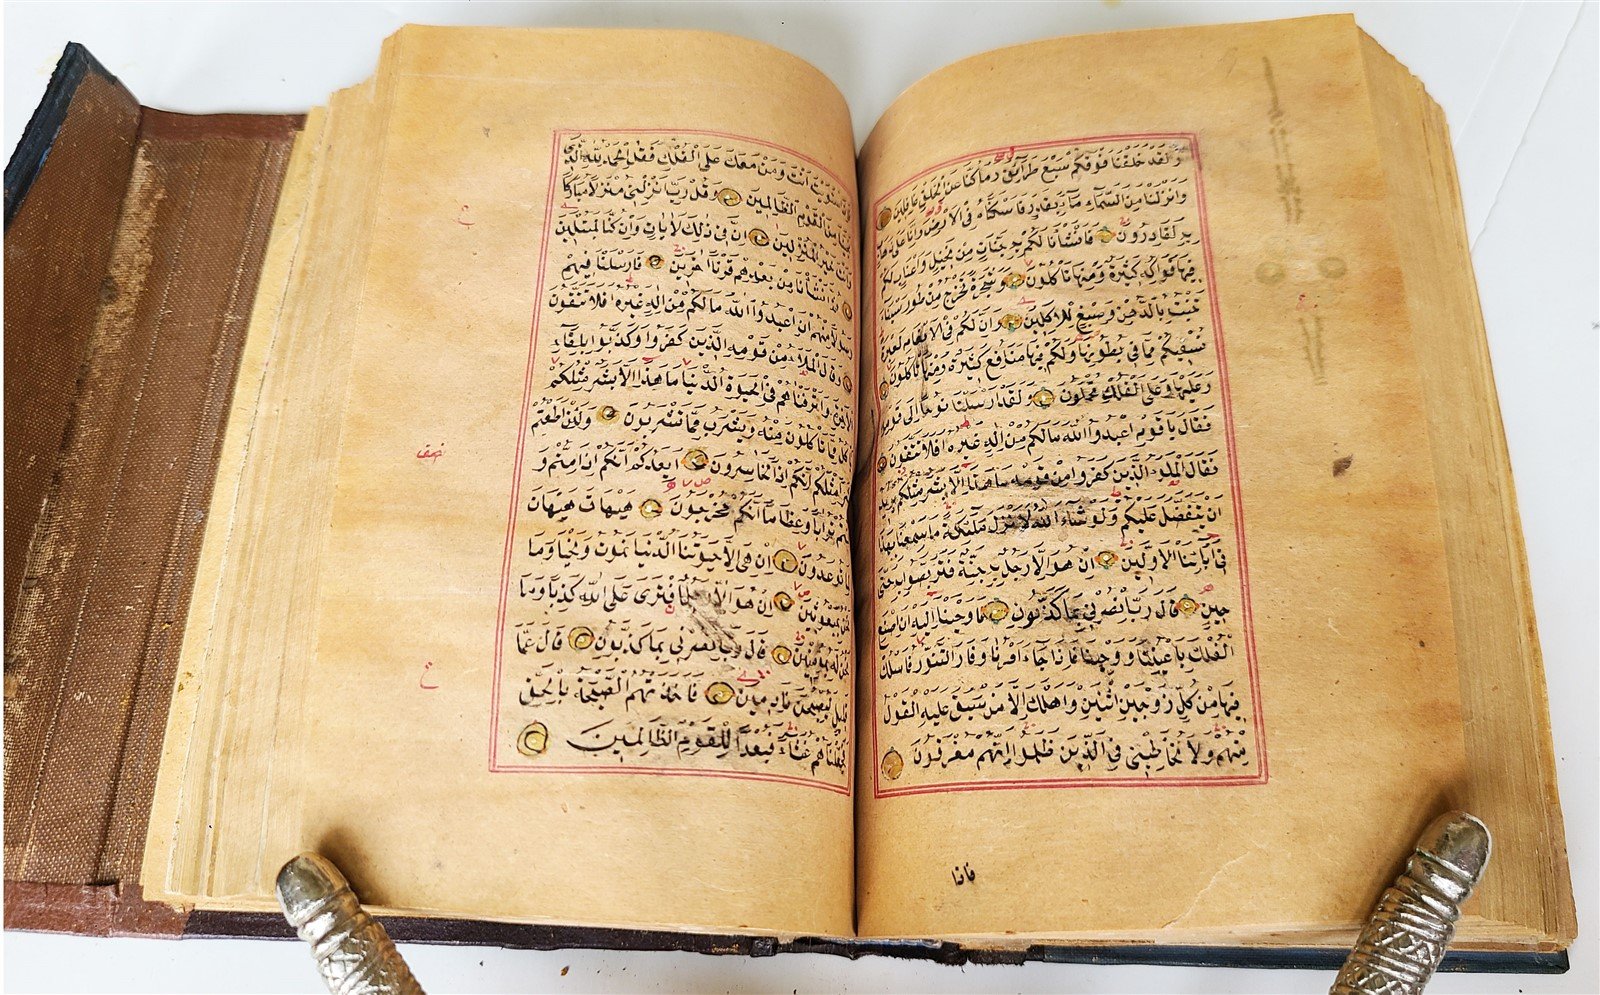 وَلَقَدْ خَلَقْنَا فَوْقَكُمْ سَبْعَ طَرَآئِقَ وَمَا كُنَّا عَنِ الْخَلْقِ غَافِلِينَ
وَاَنْزَلْنَا مِنَ السَّمَآءِ مَآءً بِقَدَرٍ فَاَسْكَنَّاهُ فِى الْاَرْضِ وَاِنَّا عَلٰى ذَهَابٍ
بِهِ لَقَادِرُونَ فَاَنْشَأْنَا لَكُمْ بِهِ جَنَّاتٍ مِنْ نَخِيلٍ وَاَعْنَابٍ لَكُمْ
فِيهَا فَوَاكِهُ كَثِيرَةٌ وَمِنْهَا تَأْكُلُونَ وَشَجَرَةً تَخْرُجُ مِنْ طُورِ سَيْنَآءَ
تَنْبُتُ بِالدُّهْنِ وَصِبْغٍ لِلْاٰكِلِينَ وَاِنَّ لَكُمْ فِى الْاَنْعَامِ لَعِبْرَةً
نُسْقِيكُمْ مِمَّا فِى بُطُونِهَا وَلَكُمْ فِيهَا مَنَافِعُ كَثِيرَةٌ وَمِنْهَا تَأْكُلُونَ
وَعَلَيْهَا وَعَلَى الْفُلْكِ تُحْمَلُونَ وَلَقَدْ اَرْسَلْنَا نُوحًا اِلٰى قَوْمِهِ
فَقَالَ يَا قَوْمِ اعْبُدُوا اللّٰهَ مَا لَكُمْ مِنْ اِلٰهٍ غَيْرُهُ اَفَلَا تَتَّقُونَ
فَقَالَ الْمَلَؤُا الَّذِينَ كَفَرُوا مِنْ قَوْمِهِ مَا هٰذَا اِلَّا بَشَرٌ مِثْلُكُمْ يُرِيدُ
اَنْ يَتَفَضَّلَ عَلَيْكُمْ وَلَوْ شَآءَ اللّٰهُ لَاَنْزَلَ مَلٰئِكَةً مَا سَمِعْنَا بِهٰذَا
فِى اٰبَآئِنَا الْاَوَّلِينَ اِنْ هُوَ اِلَّا رَجُلٌ بِهِ جِنَّةٌ فَتَرَبَّصُوا بِهِ حَتّٰى
حِينٍ قَالَ رَبِّ انْصُرْنِى بِمَا كَذَّبُونِ فَاَوْحَيْنَا اِلَيْهِ اَنِ اصْنَعِ
الْفُلْكَ بِاَعْيُنِنَا وَوَحْيِنَا فَاِذَا جَآءَ اَمْرُنَا وَفَارَ التَّنُّورُ فَاسْلُكْ
فِيهَا مِنْ كُلٍّ زَوْجَيْنِ اثْنَيْنِ وَاَهْلَكَ اِلَّا مَنْ سَبَقَ عَلَيْهِ الْقَوْلُ
مِنْهُمْ وَلَا تُخَاطِبْنِى فِى الَّذِينَ ظَلَمُوا اِنَّهُمْ مُغْرَقُونَ
فاذا
فَاِذَا اسْتَوَيْتَ اَنْتَ وَمَنْ مَعَكَ عَلَى الْفُلْكِ فَقُلِ الْحَمْدُ لِلّٰهِ الَّذِى
نَجّٰينَا مِنَ الْقَوْمِ الظَّالِمِينَ وَقُلْ رَبِّ اَنْزِلْنِى مُنْزَلًا مُبَارَكًا
وَاَنْتَ خَيْرُ الْمُنْزِلِينَ اِنَّ فِى ذٰلِكَ لَاٰيَاتٍ وَاِنْ كُنَّا لَمُبْتَلِينَ
ثُمَّ اَنْشَأْنَا مِنْ بَعْدِهِمْ قَرْنًا اٰخَرِينَ فَاَرْسَلْنَا فِيهِمْ
رَسُولًا مِنْهُمْ اَنِ اعْبُدُوا اللّٰهَ مَا لَكُمْ مِنْ اِلٰهٍ غَيْرُهُ اَفَلَا تَتَّقُونَ
وَقَالَ الْمَلَاُ مِنْ قَوْمِهِ الَّذِينَ كَفَرُوا وَكَذَّبُوا بِلِقَآءِ
الْاٰخِرَةِ وَاَتْرَفْنَاهُمْ فِى الْحَيٰوةِ الدُّنْيَا مَا هٰذَا اِلَّا بَشَرٌ مِثْلُكُمْ
يَأْكُلُ مِمَّا تَأْكُلُونَ مِنْهُ وَيَشْرَبُ مِمَّا تَشْرَبُونَ وَلَئِنْ اَطَعْتُمْ
بَشَرًا مِثْلَكُمْ اِنَّكُمْ اِذًا لَخَاسِرُونَ اَيَعِدُكُمْ اَنَّكُمْ اِذَا مِتُّمْ وَ
كُنْتُمْ تُرَابًا وَعِظَامًا اَنَّكُمْ مُخْرَجُونَ هَيْهَاتَ هَيْهَاتَ
لِمَا تُوعَدُونَ اِنْ هِىَ اِلَّا حَيَوتُنَا الدُّنْيَا نَمُوتُ وَنَحْيَا وَمَا
نَحْنُ بِمَبْعُوثِينَ اِنْ هُوَ اِلَّا رَجُلٌ افْتَرٰى عَلَى اللّٰهِ كَذِبًا وَمَا
نَحْنُ لَهُ بِمُؤْمِنِينَ قَالَ رَبِّ انْصُرْنِى بِمَا كَذَّبُونِ قَالَ عَمَّا
قَلِيلٍ لَيُصْبِحُنَّ نَادِمِينَ فَاَخَذَتْهُمُ الصَّيْحَةُ بِالْحَقِّ
فَجَعَلْنَاهُمْ غُثَآءً فَبُعْدًا لِلْقَوْمِ الظَّالِمِينَ
ع
نصف
ع